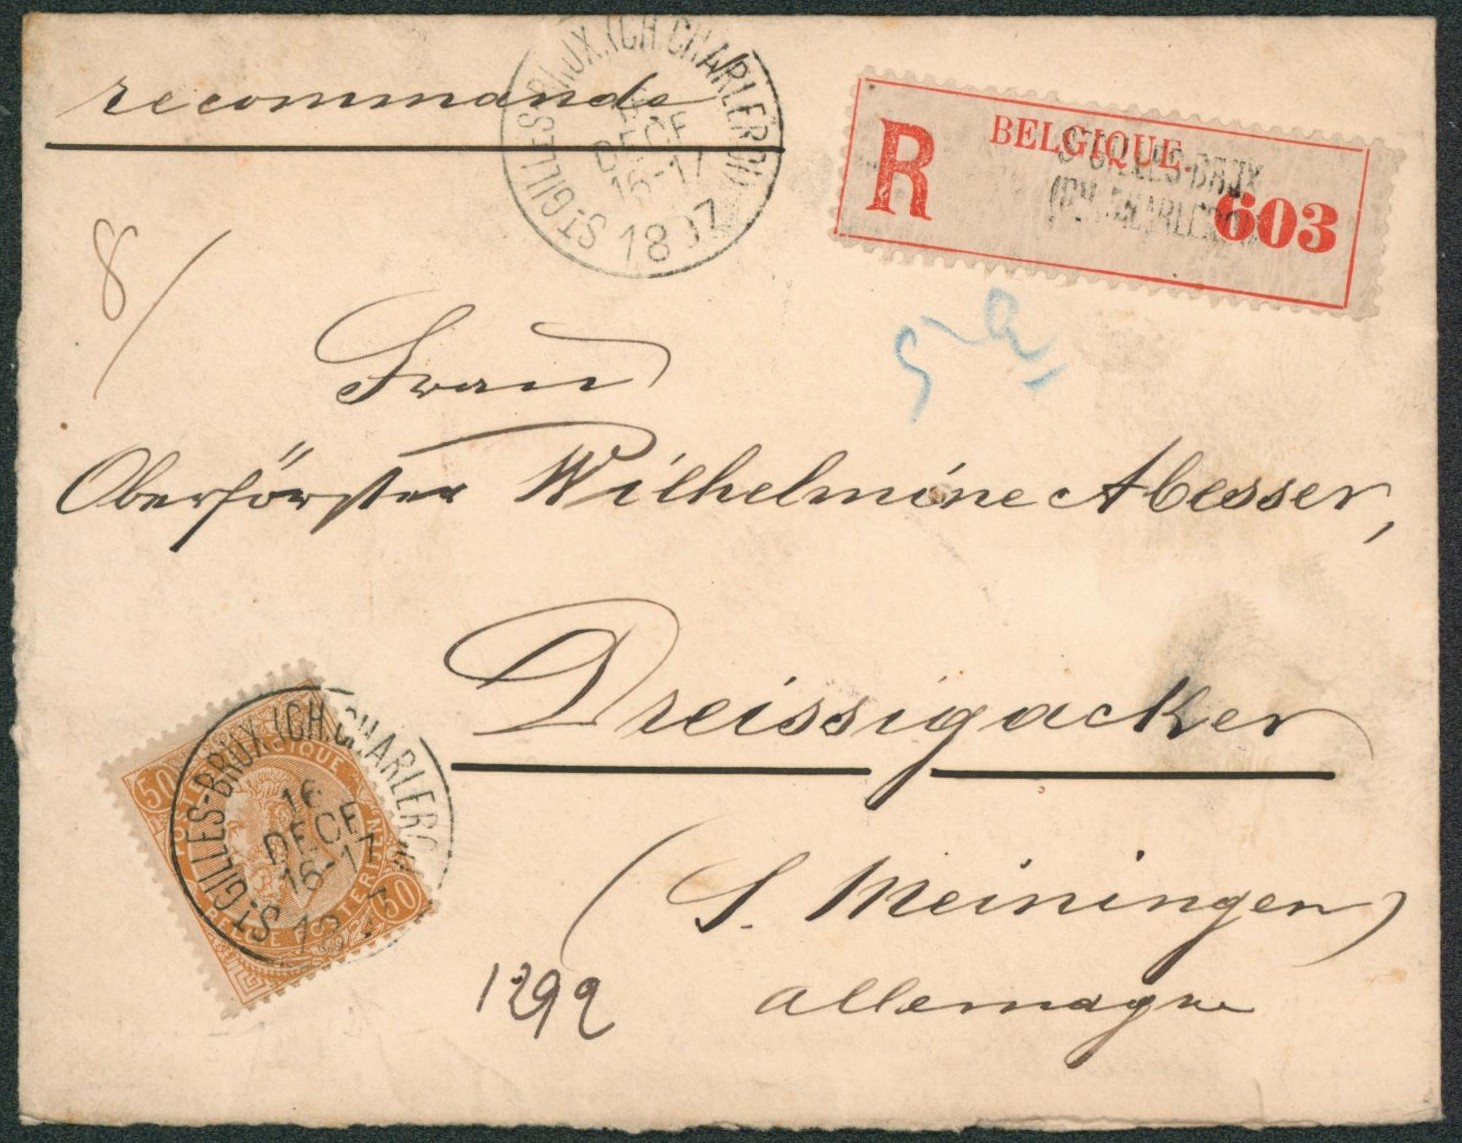 recommande
ST GILLES-BRUX. (CH. CHARLEROI)
DECE
16-17
1897
BELGIQUE.
ST GILLES-BRUX
(CH. CHARLEROI)
R
603
8/
Frau
Oberförster Wilhelmine Abesser,
Dreissigacker
(S. Meiningen)
allemagne
1292
50
POSTERIJEN
50
BELGIE POSTERIJEN
ST GILLES-BRUX. (CH. CHARLEROI)
16
DECE
16-17